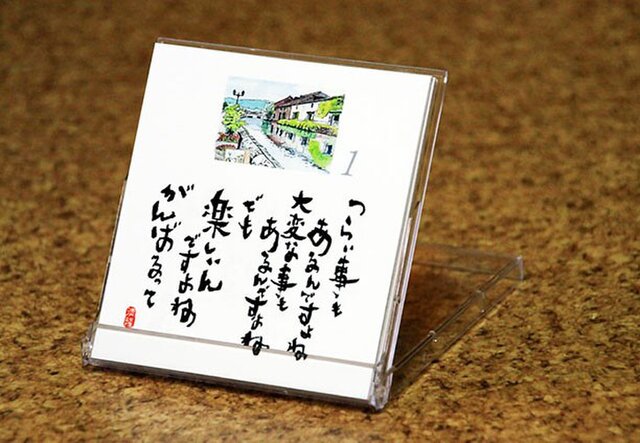 1
つらい事も
あるんですよね
大変な事も
あるんですよね
でも
楽しいん
ですよね
がんばるって